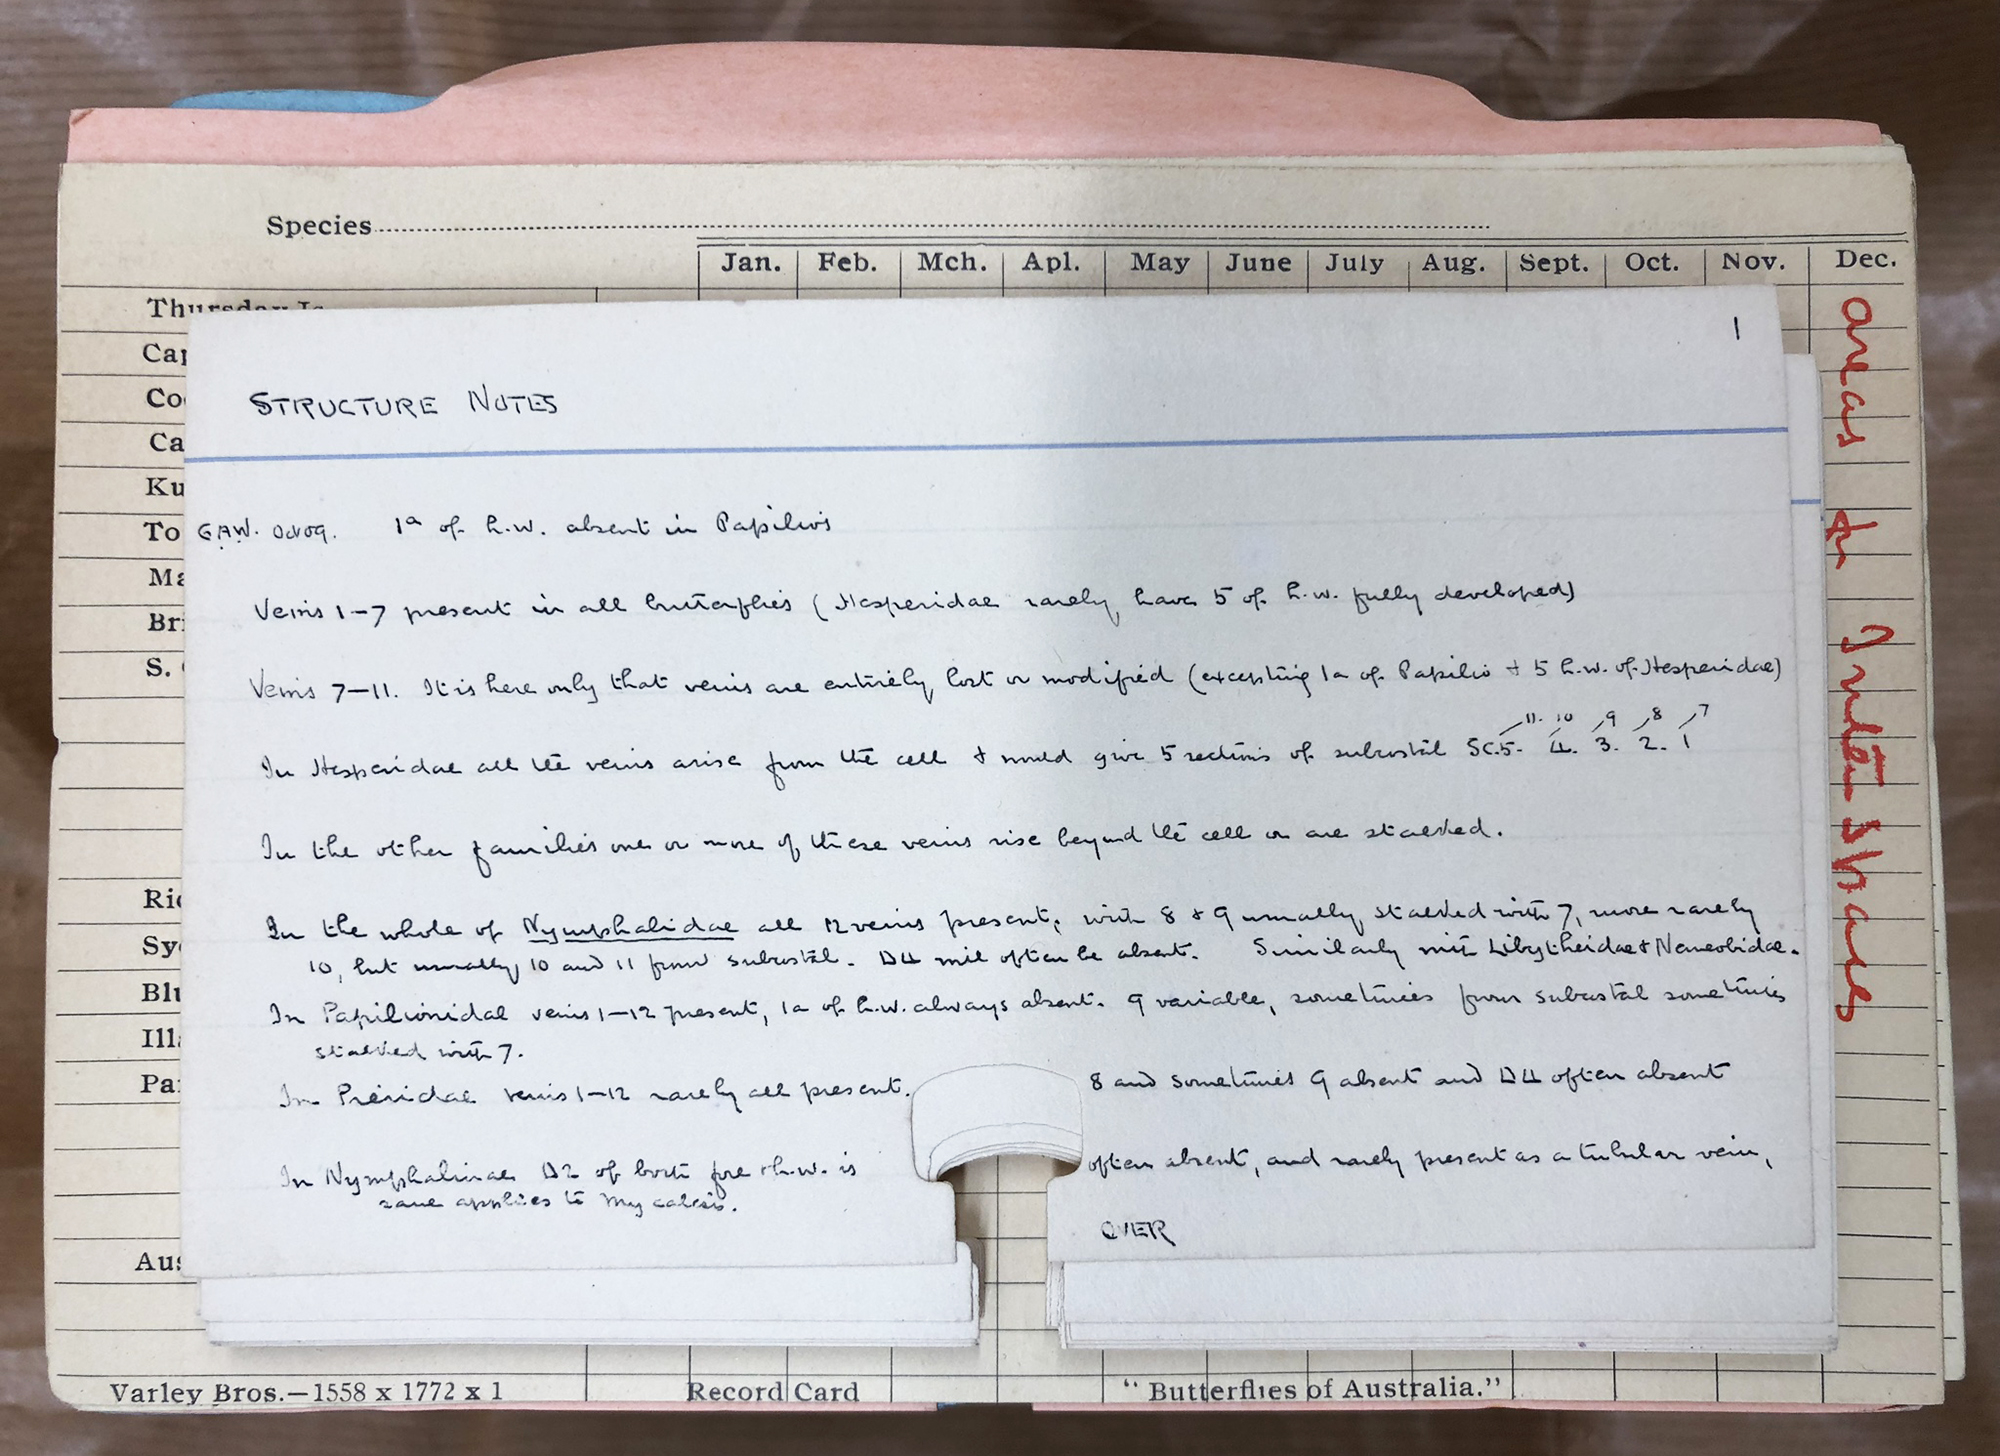 Species
Jan. Feb. Mch. Apl. May June July Aug. Sept. Oct. Nov. Dec.
Thursday Is
Cap
Coo
Ca
Ku
To
Ma
Bri
S.
Ric
Syd
Blu
Illa
Par
Aus
1
STRUCTURE NOTES
G.A.W. 1a of h.w. absent in Papilios
Veins 1-7 present in all butterflies (Hesperidae rarely have 5 of h.w. fully developed)
Veins 7-11. It is here only that veins are entirely lost or modified (excepting 1a of Papilio + 5 h.w. of Hesperidae)
11. 10 9 8 7
In Hesperidae all the veins arise from the cell + would give 5 sections of subcostal SC.5. 4. 3. 2. 1
In the other families one or more of these veins rise beyond the cell or are stalked.
In the whole of Nymphalidae all 12 veins present, with 8 & 9 usually stalked with 7, more rarely
10, but usually 10 and 11 from subcostal. D4 will often be absent. Similarly with Libytheidae & Nemeobidae.
In Papilionidae veins 1-12 present, 1a of h.w. always absent. 9 variable, sometimes from subcostal sometimes
stalked with 7.
In Pieridae veins 1-12 rarely all present. 8 and sometimes 9 absent and D4 often absent
In Nymphalinae D2 of both fore + h.w. is often absent, and rarely present as a tubular vein,
same applies to Mycalesis.
OVER
areas or Interspaces
Varley Bros.—1558 x 1772 x 1 Record Card "Butterflies of Australia."